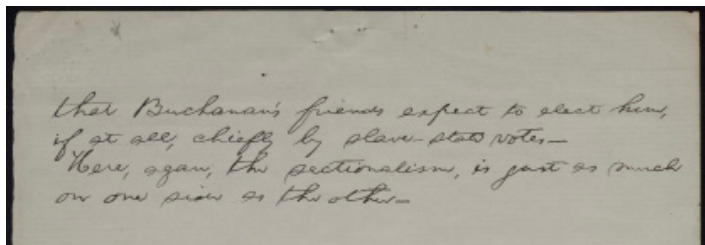 that Buchanan's friends expect to elect him,
if at all, chiefly by slave-state votes—
Here, again, the sectionalism, is just as much
on one side as the other—